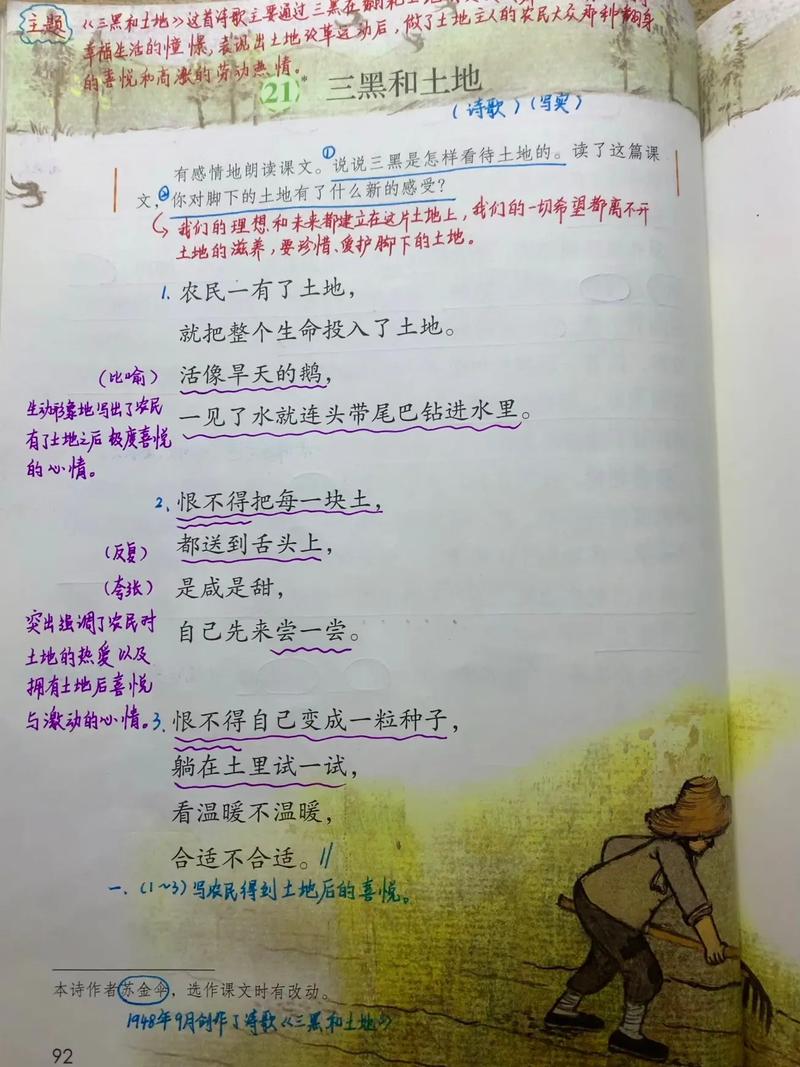 主题
《三黑和土地》这首诗歌主要通过三黑在翻和土地
幸福生活的憧憬，表现出土地改革运动后，做了土地主人的农民大众那种翻身
的喜悦和高涨的劳动热情。
21* 三黑和土地
(诗歌)(写实)
有感情地朗读课文。①说说三黑是怎样看待土地的。读了这篇课
文，②你对脚下的土地有了什么新的感受？
我们的理想和未来都建立在这片土地上，我们的一切希望都离不开
土地的滋养，要珍惜、爱护脚下的土地。
1. 农民一有了土地，
就把整个生命投入了土地。
(比喻) 活像旱天的鹅，
生动形象地写出了农民
一见了水就连头带尾巴钻进水里。
有了土地之后极度喜悦
的心情。
2. 恨不得把每一块土，
(反复) 都送到舌头上，
(夸张) 是咸是甜，
突出强调了农民对
自己先来尝一尝。
土地的热爱以及
拥有土地后喜悦
与激动的心情。
3. 恨不得自己变成一粒种子，
躺在土里试一试，
看温暖不温暖，
合适不合适。//
一、(1~3)写农民得到土地后的喜悦。
本诗作者苏金伞，选作课文时有改动。
1948年9月创作了诗歌《三黑和土地》
92